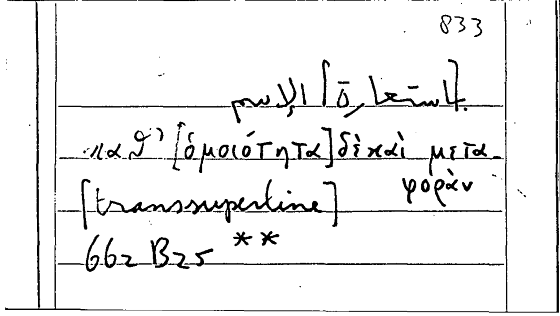 833
باستعارة الإسم
καθ' [ὁμοιότητα] δὲ καὶ μετα-
φορὰν
[transsuperline]
662 B25 **